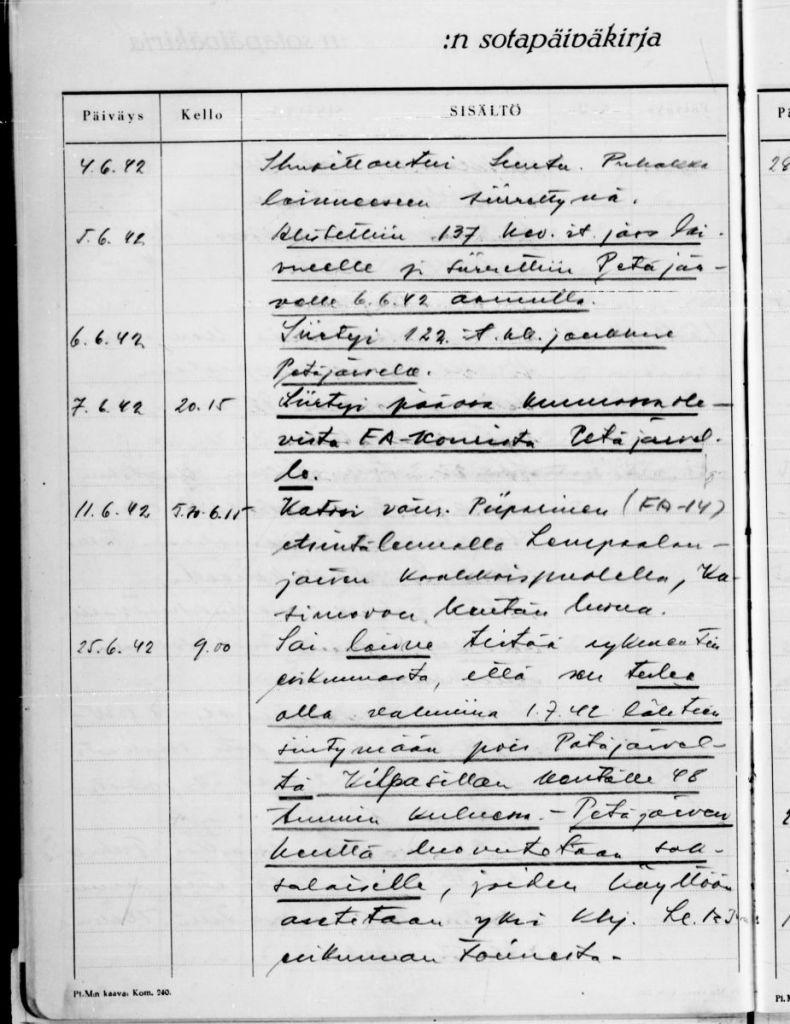 :n sotapäiväkirja
Päiväys Kello SISÄLTÖ
4.6.42 Ilmoittautui Puhakka
laivueeseen siirrettynä.
5.6.42 Alistettiin 137 kev. it. jaos lai-
vueelle ja siirrettiin Petäjär-
velle 6.6.42 aamulla.
6.6.42 Siirtyi 122. it. kk. joukkue
Petäjärvelle.
7.6.42 20.15 Siirtyi pääosa kunnossa ole-
vista FA-koneista Petäjärvel-
le.
11.6.42 Katosi vänr. Piiparinen (FA-14)
etsintälennolla Lempaalan-
järven kaakkoispuolella, Ka-
simovon kentän luona.
25.6.42 9.00 Sai laivue tietää rykmentin
esikunnasta, että sen tulee
olla valmiina 1.7.42 lähtien
siirtymään pois Petäjärvel-
tä Kilpasillan kentälle 48
tunnin kuluessa. - Petäjärven
kenttä luovutetaan sak-
salaisille, joiden käyttöön
asetetaan yksi Le.R 3:n
esikunnan toimesta.
Pl.M:n kaava: Kom. 240.
28